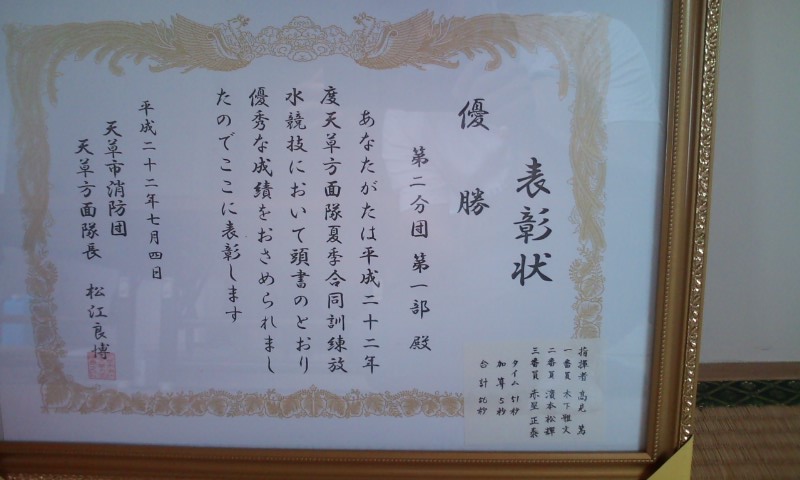 表彰状
優勝
第二分団 第一部 殿
あなたがたは平成二十二年
度天草方面隊夏季合同訓練放
水競技において頭書のとおり
優秀な成績をおさめられまし
たのでここに表彰します
平成二十二年七月四日
天草市消防団
天草方面隊長 松江良博
指揮者 高見 篤
一番員 木下雅文
二番員 濱本松輝
三番員 赤星正泰
タイム 51秒
加算 5秒
合計 56秒